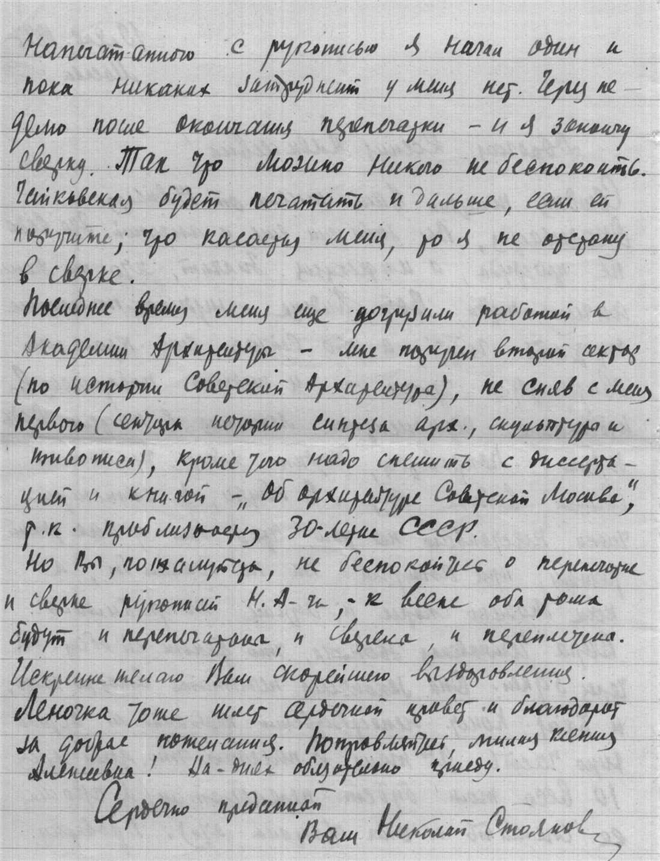 Напечатанного с рукописью я начал один и
пока никаких затруднений у меня нет. Через не-
делю после окончания перепечатки – и я закончу
сверку. Так что можно никого не беспокоить.
Чайковская будет печатать и дальше, если ей
поручите, что касается меня, то я не отстану
в сверке.
Последнее время меня еще догрузили работой в
Академии Архитектуры – мне поручен второй сектор
(по истории Советской Архитектуры), не сняв с меня
первого (сектора истории синтеза арх., скульптуры и
живописи), кроме того надо спешить с диссерта-
цией и книгой – „Об архитектуре Советской Москвы",
т.к. приближается 30-летие СССР.
Но Вы, пожалуйста, не беспокойтесь о перепечатке
и сверке рукописей Н.А-ча, – к весне оба тома
будут и перепечатаны, и сверены, и переплетены.
Искренне желаю Вам скорейшего выздоровления.
Леночка тоже шлет сердечный привет и благодарит
за добрые пожелания. Поправляйтесь, милая Ксения
Алексеевна! На-днях обязательно приеду.
Сердечно преданный
Ваш Николай Стоянов